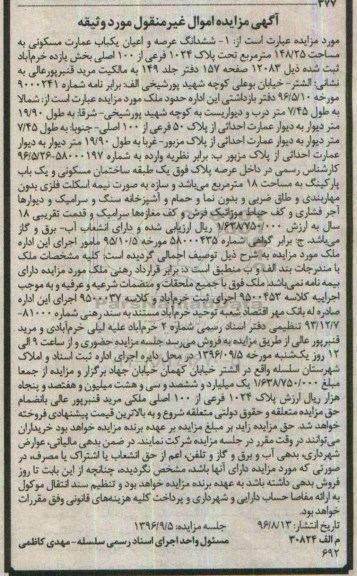 ۳۷۷
آگهی مزایده اموال غیرمنقول مورد وثیقه
مورد مزایده عبارت است از: ۱- ششدانگ عرصه و اعیان یکباب عمارت مسکونی به
مساحت ۱۴۸/۲۵ مترمربع تحت پلاک ۱۰۲۴ فرعی از ۱۰۰ اصلی بخش یازده خرم‌آباد
ثبت شده ذیل ۱۲۰۸۳ صفحه ۱۵۷ دفتر جلد ۱۴۹ به مالکیت مرید قنبرپورعالی به
نشانی: الشتر- خیابان بوعلی کوچه شهید پورشیخی الف: برابر نامه شماره ۹۰۰۰۲۴۱
مورخه ۹۶/۵/۱۰ دفتر بازداشتی این اداره حدود ملک مورد مزایده عبارت است از: شمالا
به طول ۷/۴۵ متر درب و دیواریست به کوچه شهید پورشیخی- شرقا: به طول ۱۹/۹۰
متر دیوار به دیوار عمارت احداثی از پلاک ۵۰ فرعی از ۱۰۰ اصلی- جنوبا: به طول ۷/۴۵
متر دیوار به دیوار عمارت احداثی از پلاک مزبور- غربا به طول ۱۹/۹۰ متر دیوار به دیوار
عمارت احداثی از پلاک مزبور ب: برابر نظریه وارده به شماره ۵۸۰۰۰۱۹۷-۹۶/۵/۲۶
کارشناس رسمی در داخل عرصه پلاک فوق یک طبقه ساختمان مسکونی و یک باب
پارکینگ به مساحت ۱۸ مترمربع می‌باشد و سازه به صورت نیمه اسکلت فلزی بدون
مهاربندی و طاق ضربی و بدون نما و حمام و آشپزخانه سنگ و سرامیک و دیوارها
آجر فشاری و کف حیاط موزائیک فرش و کف مغازه‌ها سرامیک و قدمت تقریبی ۱۸
سال به ارزش ۱/۶۳۸/۷۵۰/۰۰۰ ریال ارزیابی شده و دارای انشعاب آب- برق و گاز
می‌باشد. ج: برابر گواهی شماره ۵۸۰۰۰۴۳۵ مورخه ۹۵/۱۰/۵ مأمور اجرای این اداره
ملک مورد مزایده به شرح ذیل توصیف اجمالی گردیده است: کلیه مشخصات ملک
با مندرجات بند الف و ب منطبق است د: برابر قرارداد رهنی ملک مورد مزایده دارای
بیمه نامه نمی‌باشد. ملک فوق با جمیع ملحقات و منضمات شرعیه و عرفیه و به موجب
اجراییه کلاسه ۹۵۰۰۴۵۳ اجرای ثبت خرم‌آباد و کلاسه ۹۵۰۰۰۳۷ اجرای این اداره
صادره له بانک مهر اقتصاد شعبه توحید خرم‌آباد مستند به سند رهنی شماره ۸۱۰۰۰-
۹۳/۱۲/۷ تنظیمی دفتر اسناد رسمی شماره ۲ خرم‌آباد علیه لیلی خرم‌آبادی و مرید
قنبرپور عالی از طریق مزایده به فروش می‌رسد. جلسه مزایده حضوری و از ساعت ۹ الی
۱۲ روز یکشنبه مورخه ۱۳۹۶/۰۹/۵ در محل دایره اجرای اداره ثبت اسناد و املاک
شهرستان سلسله واقع در الشتر خیابان کهمان خیابان جهاد برگزار و مزایده از جمعا
مبلغ ۱/۶۳۸/۷۵۰/۰۰۰ یک میلیارد و ششصد و سی و هشت میلیون و هفتصد و پنجاه
هزار ریال ارزش پلاک ۱۰۲۴ فرعی از ۱۰۰ اصلی ملکی مرید قنبرپور عالی بانضمام
حق مزایده متعلقه و حقوق دولتی متعلقه شروع و به بالاترین قیمت پیشنهادی فروخته
خواهد شد. حق مزایده زاید بر مبلغ مزایده بر عهده برنده مزایده خواهد بود خریداران
می‌توانند در وقت مقرر در جلسه مزایده شرکت نمایند. در ضمن بدهی مالیاتی، عوارض
شهرداری، بدهی آب و برق و گاز و تلفن، اعم از حق انشعاب یا اشتراک یا مصرف، در
صورتی که مورد مزایده دارای آنها باشد، مشخص نگردیده، چنانچه از این بابت تا روز
فروش بدهی داشته باشد به عهده برنده مزایده خواهد بود و تنظیم سند انتقال موکول
به ارائه مفاصا حساب دارایی و شهرداری و پرداخت کلیه هزینه‌های قانونی وفق مقررات
خواهد بود.
تاریخ انتشار: ۹۶/۸/۱۳ جلسه مزایده: ۱۳۹۶/۹/۵
م الف ۳۰۸۲۴ مسئول واحد اجرای اسناد رسمی سلسله- مهدی کاظمی
۶۹۲